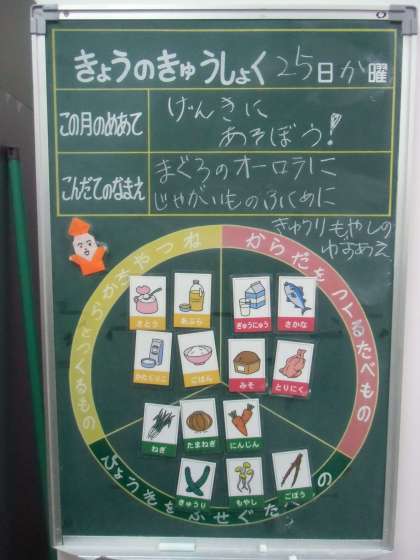 きょうのきゅうしょく 25日か曜
この月のめあて
げんきに
あそぼう!
こんだてのなまえ
まぐろのオーロラに
じゃがいものふくめに
きゅうりもやしの
ゆずあえ
からだをつくるたべもの
さとう
あぶら
ぎゅうにゅう
さかな
かたくりこ
ごはん
みそ
とりにく
ねぎ
たまねぎ
にんじん
きゅうり
もやし
ごぼう